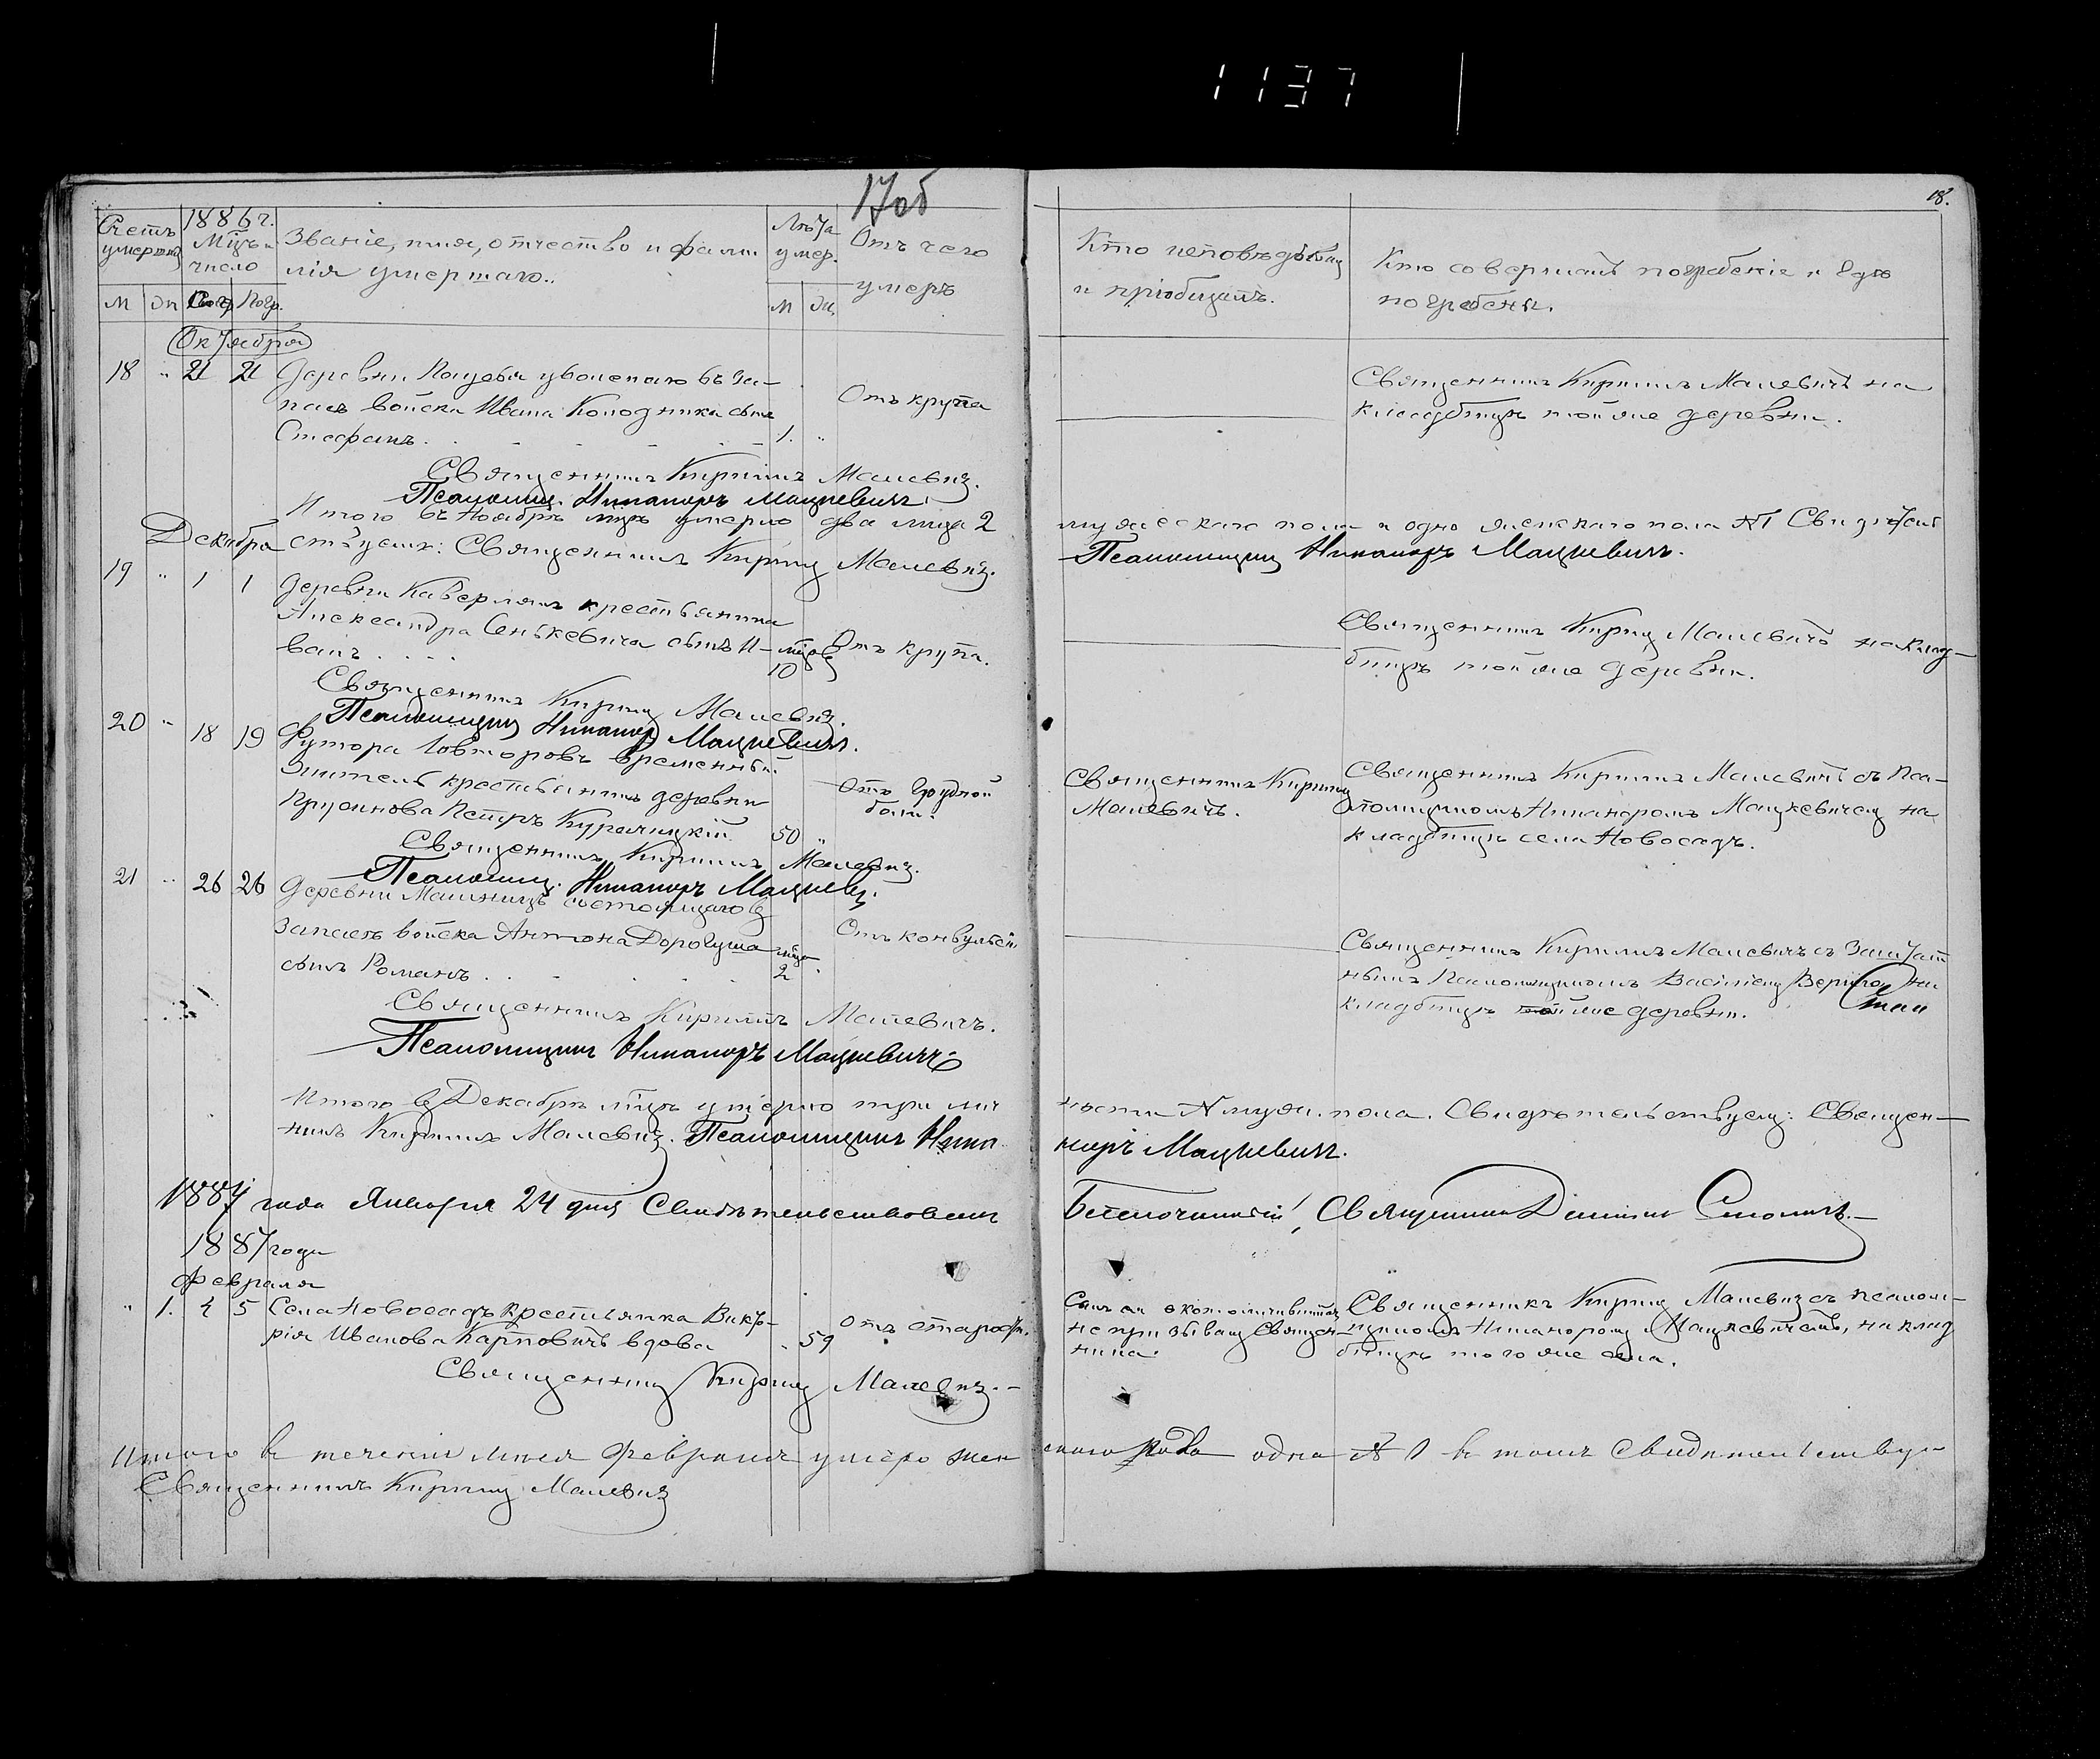 1137
17 об
18.
Счетъ умершихъ
1886 г.
Мѣць и число
Званіе, имя, отчество и фами
лія умершаго..
Лѣта умер.
Отъ чего
умеръ
Кто исповѣдовалъ
и пріобщалъ.
Кто совершалъ погребеніе и гдѣ
погребены.
М Ж Погр. М Ж
Октября
18 " 21 21 Деревни уволеннаго въ за-
пасъ войска Ивана Колодника сынъ
Стефанъ. 1. "
Отъ крупа
Священникъ Кириллъ Малевичъ на
кладбищѣ той же деревни.
Священникъ Кириллъ Малевичъ.
Псаломщ. Никаноръ Мацкевичъ.
Итого въ Ноябрѣ мцѣ умерло два лица 2
мужескаго пола и одно женскаго пола №1 Свидѣтель
ствуемъ: Священникъ Кириллъ Малевичъ.
Псаломщикъ Никаноръ Мацкевичъ.
Декабря
19 " 1 1 Деревни крестьянина
Александра Сенькевича сынъ И-
ванъ . . . . мцев 10
Отъ крупа.
Священникъ Кириллъ Малевичъ на клад-
бищѣ той же деревни.
Священникъ Кириллъ Малевичъ.
Псаломщикъ Никаноръ Мацкевичъ.
20 " 18 19 Футора временный
житель крестьянинъ деревни
Прусинова Петръ 50 "
Отъ грудной
боли.
Священникъ Кириллъ
Малевичъ.
Священникъ Кириллъ Малевичъ съ пса-
ломщикомъ Никаноромъ Мацкевичемъ на
кладбищѣ села Новосадъ.
Священникъ Кириллъ Малевичъ.
Псаломщ. Никаноръ Мацкевичъ.
21 " 26 26 Деревни состоящаго въ
запасѣ войска Антона Дорогуша
сынъ Романъ . . . . мца 2
Отъ конвульсій
Священникъ Кириллъ Малевичъ съ Заштат
нымъ Псаломщикомъ Василіемъ на
кладбищѣ той же деревни.
Священникъ Кириллъ Малевичъ.
Псаломщикъ Никаноръ Мацкевичъ.
Итого въ Декабрѣ мцѣ умерло три
муж. пола. Свидѣтельствуемъ: Священ-
никъ Кириллъ Малевичъ. Псаломщикъ Ника
норъ Мацкевичъ.
1887 года Января 24 дня Свидѣтельствовалъ
Благочинный, Священникъ
1887 года
Февраля
" 1. 4 5 Села Новосадъ крестьянка Викто-
рія Иванова Карповичъ вдова " 59
Отъ старости.
не призывали Священ-
ника.
Священникъ Кириллъ Малевичъ съ псалом-
щикомъ Никаноромъ Мацкевичемъ, на клад
бищѣ того же села.
Священникъ Кириллъ Малевичъ. -
Итого въ теченіи мѣсяця Февраля умерло жен
скаго рода одна № 1 въ томъ свидѣтельствую
Священникъ Кириллъ Малевичъ